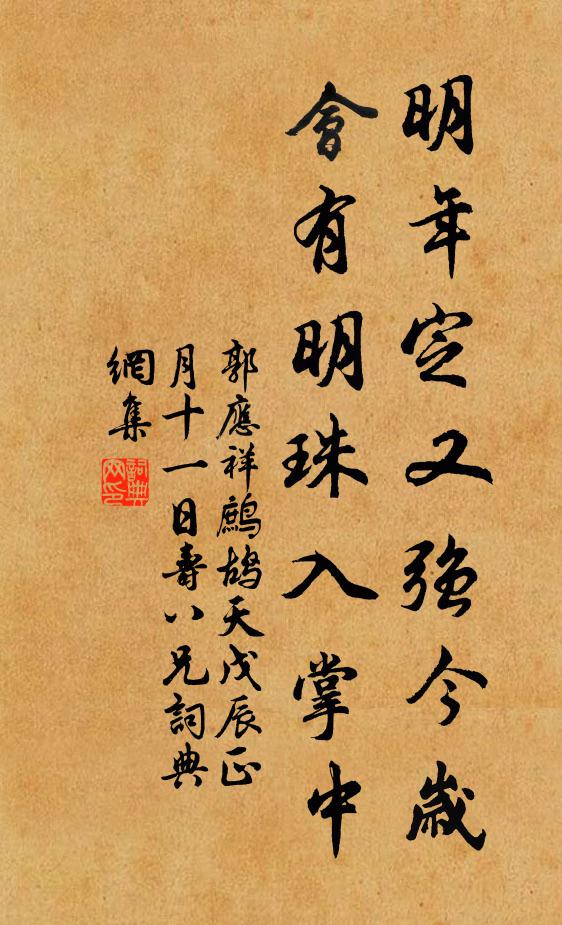 明年定又強今歲
會有明珠入掌中
郭應祥鷓鴣天戊辰正
月十一日壽八兄詞典
網集
詞典网印